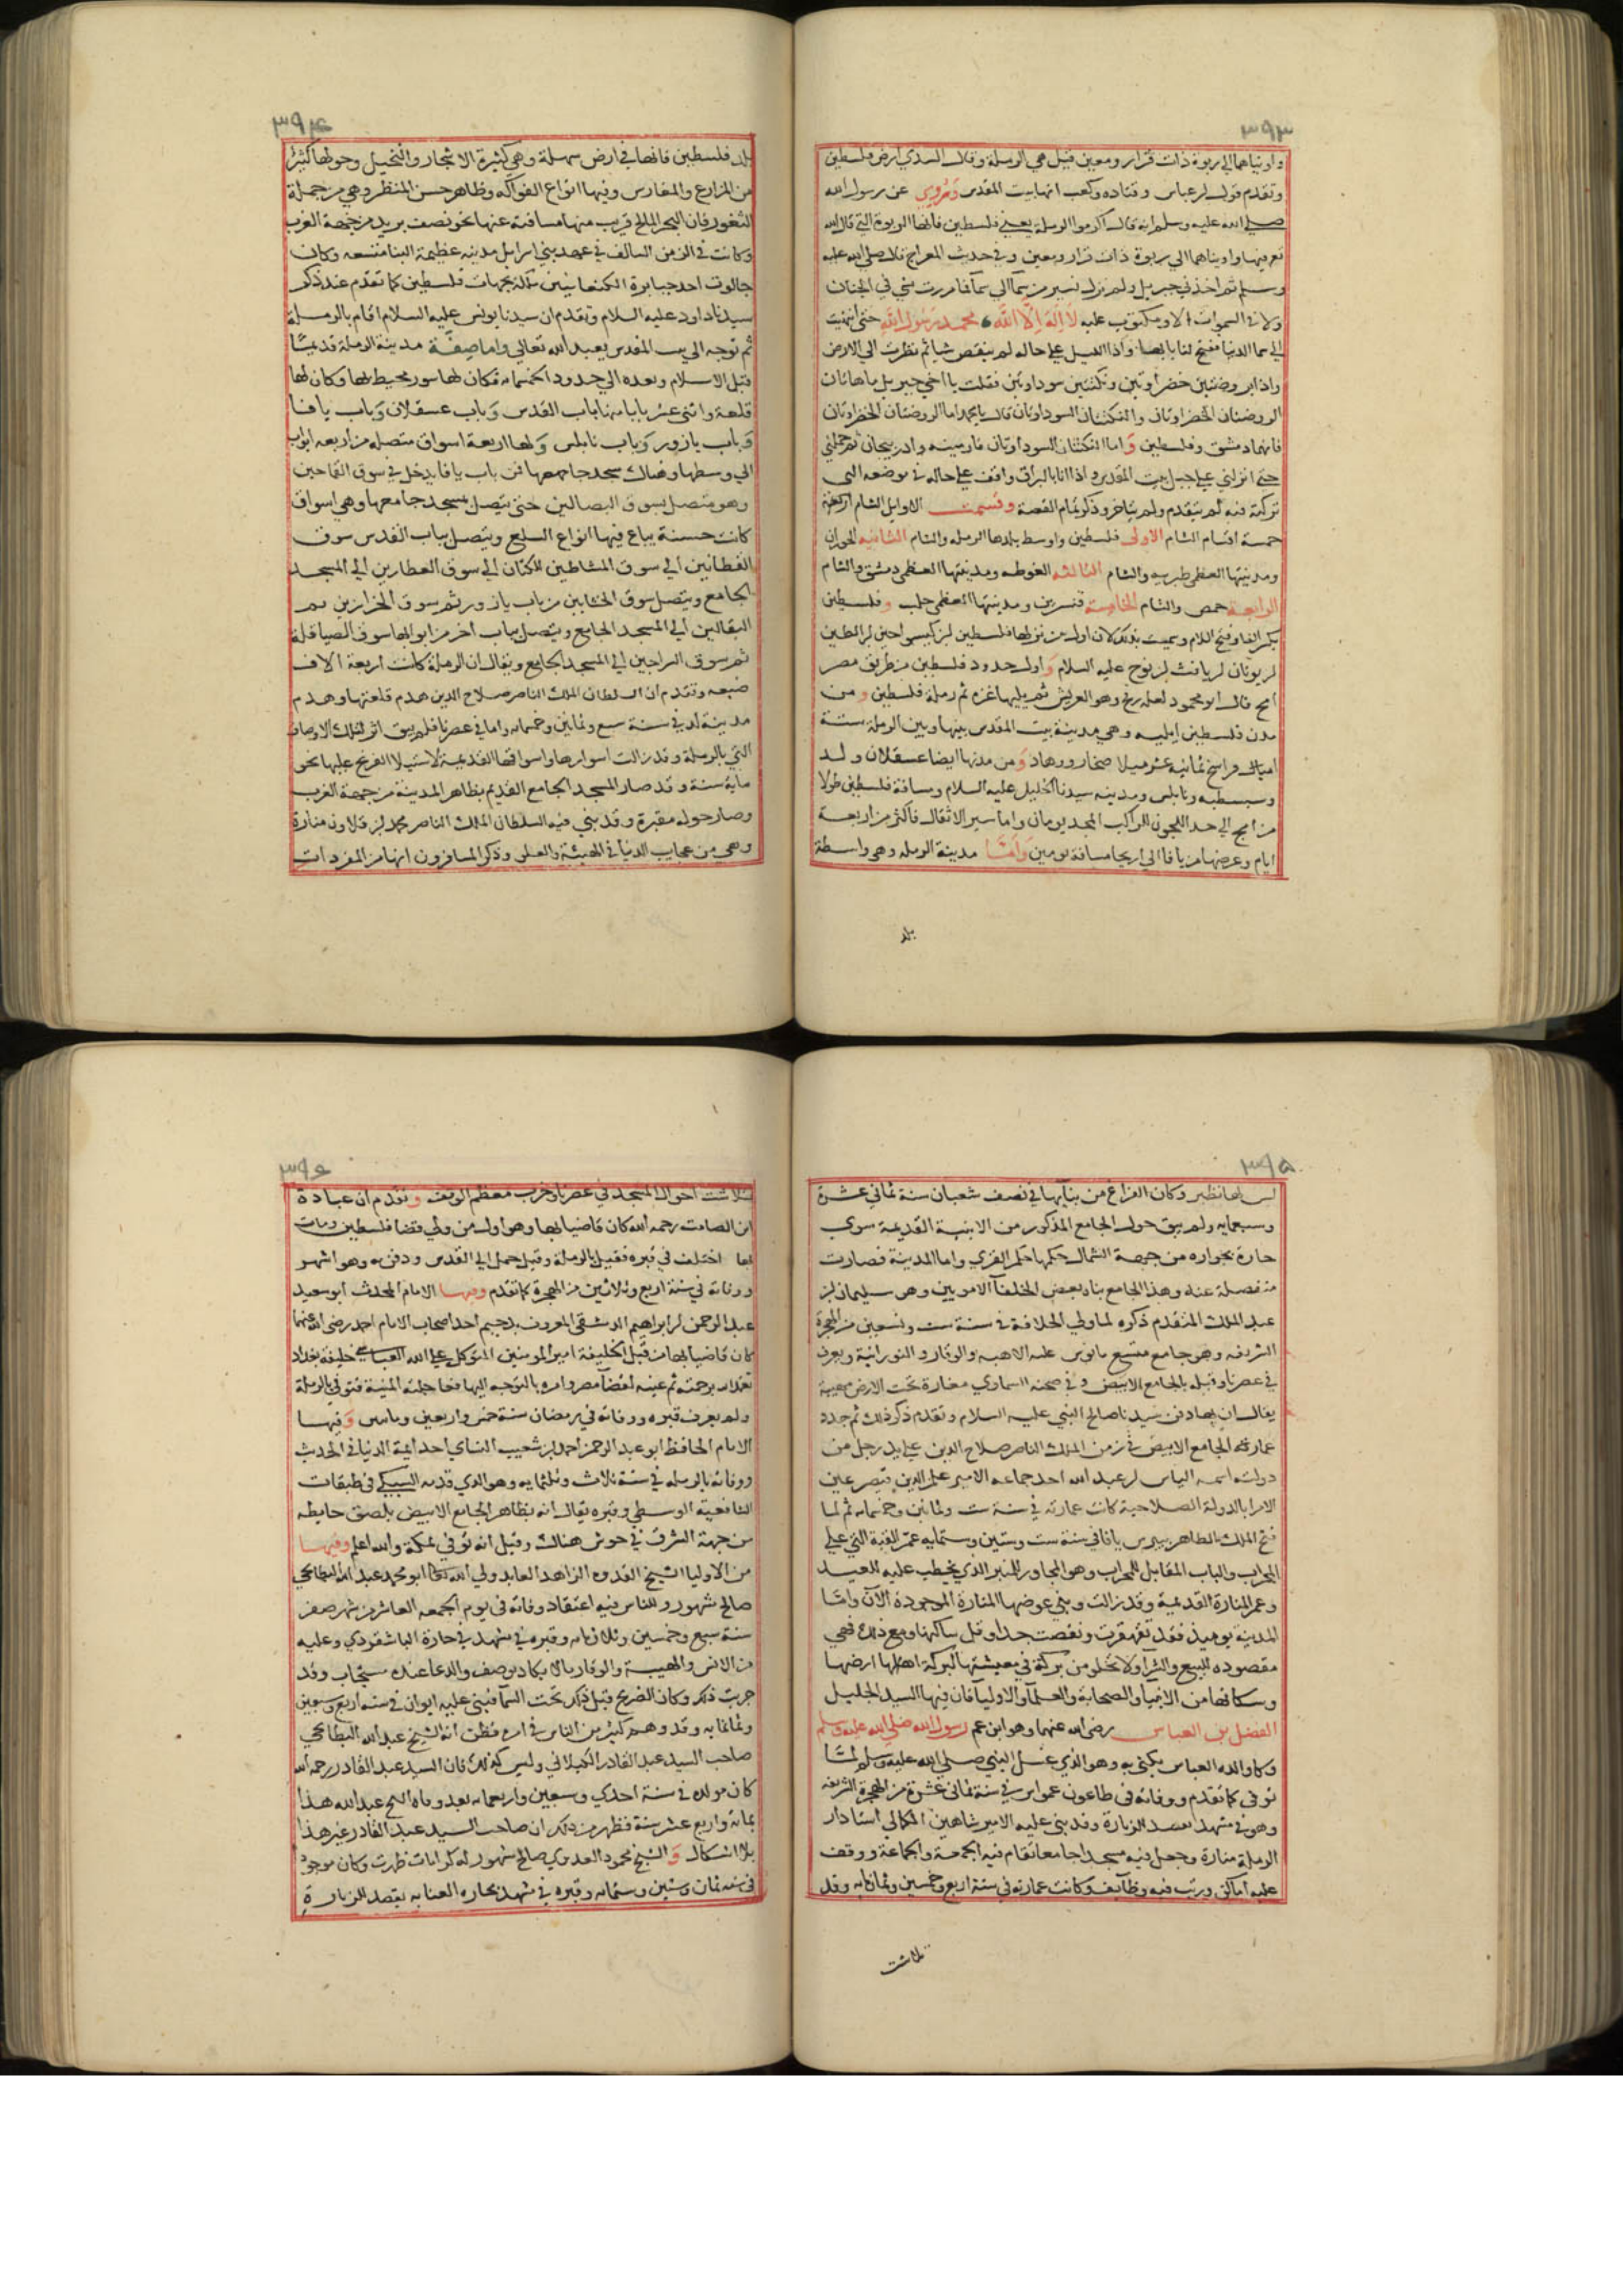 ٣٩٣
واويناهما الي ربوة ذات قرار ومعين قيل هي الرملة وقال السدي ارض فلسطين
وتقدم قول ابن عباس وقتاده وكعب انها بيت المقدس وَرُوِي عن رسول الله
صلي الله عليه وسلم انه قال اكرموا الرملة يعني فلسطين فانها الربوة التي قال الله
فيها واويناهما الي ربوة ذات قرار ومعين وفي حديث المعراج قال صلي الله عليه
وسلم ثم اخذني جبريل ولم نزل نسير من سمآ الي سمآ فما مررت بشي في الجنان
ولا في السموات الا ومكتوب عليه لَا اِلَهَ اِلّا الله محمد رَسُول الله حتي انتهيت
الي سما الدنيا ففتح لنا بابها واذا الليل علي حاله لم ينقص شيا ثم نظرت الي الارض
واذا بروضتين خضراوتين ونكتتين سوداوتين فقلت يا اخي جبريل ما هاتان
الروضتان الخضراوتان والنكتتان السوداوتان قال يا محمد اما الروضتان الخضراوتان
فانهما دمشق وفلسطين وَاما النكتتان السوداوتان فارمينيه وادربيجان ثم حملني
حتي انزلني علي جبل بيت المقدس واذا انا بالبراق واقف علي حاله في موضعه التي
تركته فيه لم يتقدم ولم يتاخر وذكر تمام القصة وقسمت الاوايل الشام
خمسة اقسام الشام الاولى فلسطين واوسط بلدها الرمله والشام الثانيه الحوران
ومدينتها العظمي طبريه والشام الثالثه الغوطه ومدينتها العظمي دمشق والشام
الرابعة حمص والشام الخامسة قنسرين ومدينتها العظمي حلب وفلسطين
بكسر الفا وفتح اللام وسميت بذلك لان اول من نزلها فلسطين
ابن يونان ابن يافث ابن نوح عليه السلام وَاول حدود فلسطين من طريق مصر
امج قال ابو محمود لعله رفح وهو العريش ثم يليها غزه ثم رملة فلسطين ومن
مدن فلسطين ايليه وهي مدينة بيت المقدس بينها وبين الرمله ستة
اميال فراسخ ثمانيه عشر ميلا وَمن مدنها ايضا عسقلان ولد
وسبسطيه ونابلس ومدينه سيدنا الخليل عليه السلام ومسافة فلسطين طولا
من امج الي حد اللجون للراكب المجد يومان واما سير الاثقال فاكثر من اربعة
ايام وعرضها من يافا الي اريحا مسافة يومين وَاَمَّا مدينة الرمله وهي واسطة
بلد
٣٩٤
بلد فلسطين فانها في ارض سهلة وهي كثيرة الاشجار والنخيل وحولها كثير
من المزارع والمغارس وفيها انواع الفواكه وظاهر حسن المنظر وهي من جملة
الثغور فان البحر المالح قريب منها مسافته عنها نحو نصف بريد من جهة الغرب
وكانت في الزمن السالف في عهد بني اسرايل مدينه عظيمة البنا متسعه وكان
جالوت احد جبابرة الكنعانيين بجهات فلسطين كما تقدم عند ذكر
سيدنا داود عليه السلام وتقدم ان سيدنا يونس عليه السلام اقام بالرملة
ثم توجه الي بيت المقدس يعبد الله تعالي واما صِفَة مدينة الرملة قديما
قبل الاسلام وبعده الي حدود الخمسمايه فكان لها سور محيط بها وكان لها
قلعة واثني عشر بابا منها باب القدس وَباب عسقلان وَباب يافا
وَباب يازور وَباب نابلس وَلها اربعة اسواق متصله من اربعه ابواب
الي وسطها وهناك مسجد جامعها فمن باب يافا يدخل في سوق القماحين
وهو متصل بسوق البصالين حتي يتصل بمسجد جامعها وهي اسواق
كانت حسنة يباع فيها انواع السلع ويتصل بباب القدس سوق
القطانين الي سوق المشاطين للكتان الي سوق العطارين الي المسجد
الجامع ويتصل سوق الخشابين من باب يازور ثم سوق الخرازين ثم
البقالين الي المسجد الجامع ويتصل بباب اخر من ابوابها سوق الصياقلة
ثم سوق السراجين الي المسجد الجامع ويقال ان الرملة كانت اربعة الاف
ضيعه وتقدم ان السلطان الملك الناصر صلاح الدين هدم قلعتها وهدم
مدينة لد في سنة سبع وثمانين وخمسمايه واما في عصرنا فلم يبق اثر لتلك الاوصاف
التي بالرملة وقد زالت اسوارها واسواقها القديمة لاستيلا الفرنج عليها نحو
ماية سنة وقد صار المسجد الجامع القديم بظاهر المدينة من جهة الغرب
وصار حوله مقبرة وقد بني فيه السلطان الملك الناصر محمد ابن قلاون منارة
وهي من عجايب الدنيا في الهيئة والعلو وذكر المسافرون انها من المفردات
٣٩٥
ليس لها نظير وكان الفراغ من بنآيها في نصف شعبان سنة ثماني عشرة
وسبعمايه ولم يبق حول الجامع المذكور من الابنية القديمة سوي
حارة بجواره من جهة الشمال حكمها حكم القري واما المدينة فصارت
منفصلة عنه وهذا الجامع بناه بعض الخلفآ الامويين وهو سليمان ابن
عبد الملك المتقدم ذكره لما ولي الخلافة في سنة ست وتسعين من الهجرة
الشريفه وهو جامع متسع مانوس عليه الابهه والوقار والنورانية ويعرف
في عصرنا وقبله بالجامع الابيض وفي صحنه السماوي مغارة تحت الارض مهيبة
يقال ان بها دفن سيدنا صالح النبي عليه السلام وتقدم ذكر ذلك ثم جدد
عمارة الجامع الابيض في زمن الملك الناصر صلاح الدين علي يد رجل من
دولته اسمه الياس ابن عبد الله احد جماعه الامير علم الدين قيصر عين
الامرا بالدولة الصلاحية كانت عمارته في سنة ست وثمانين وخمسمايه ثم لما
فتح الملك الظاهر بيبرس يافا في سنة ست وستين وستمايه عمّر القبة التي علي
المحراب والباب المقابل للمحراب وهو المجاور للمنبر الذي يخطب عليه للعيد
وعمر المنارة القديمة وقد زالت وبني عوضها المنارة الموجودة الآن وامّا
المدينه يوميذ فقد تقهقرت ونقصت جدا وقل ساكنها ومع ذلك فهي
مقصوده للبيع والشرآ ولا تخلو من بركة في معيشتها لبركة اهلها ارضها
وسكانها من الانبيا والصحابة والعلمآ والاوليا فان فيها السيد الجليل
الفضل بن العباس رضي الله عنهما وهو ابن عم رسول الله صلي الله عليه وسلم
وكان والده العباس يكني به وهو الذي غسل النبي صلي الله عليه وسلم لمّا
توفي كما تقدم ووفاته في طاعون عمواس في سنة ثماني عشرة من الهجرة الشريفه
وهو في مشهد يقصد للزيارة وقد بني عليه الامير شاهين الكمالي استادار
الرملة منارة وجعل فيه مسجدا جامعا تقام فيه الجمعة والجماعة ووقف
عليه اماكن ورتب فيه وظآيف وكانت عمارته في سنة اربع وخمسين وثمانمايه وقد
تلاشت
٣٩٦
تلاشت احوال المسجد في عصرنا وخرب معظم الوقف وتقدم ان عبادة
ابن الصامت رحمه الله كان قاضيا بها وهو اول من ولي قضا فلسطين ومات
بها اختلف في قبره فقيل بالرملة وقيل حمل الي القدس ودفن به وهو اشهر
ووفاته في سنة اربع وثلاثين من الهجرة كما تقدم ومنها الامام المحدث ابو سعيد
عبد الرحمن ابن ابراهيم الدمشقي المعروف بدحيم احد اصحاب الامام احمد رضي الله عنهما
كان قاضيا بها من قبل الخليفة امير المومنين المتوكل علي الله العباسي خليفة بغداد
تغمده الله برحمته ثم عينه لقضآ مصر وامره بالتوجه اليها فعاجلته المنية فتوفي بالرملة
ولم يعرف قبره ووفاته في رمضان سنة خمس واربعين وماتين وَفيها
الامام الحافظ ابو عبد الرحمن احمد ابن شعيب النساي احد ايمة الدنيا في الحديث
ووفاته بالرمله في سنة ثلاث وثلثمايه وهو الذي قدمه السبكي في طبقات
الشافعية الوسطي وقبره يقال انه بظاهر الجامع الابيض بلصق حايطه
من جهة الشرق في حوش هناك وقيل انه توفي بمكة والله اعلم وفيها
من الاوليا الشيخ القدوه الزاهد العابد ولي الله تعالي ابو محمد عبد الله البطايحي
صالح مشهور وللناس فيه اعتقاد وفاته في يوم الجمعه العاشر من شهر صفر
سنة سبع وخمسين وثلاثمايه وقبره في مشهد في حارة الباشقردي وعليه
من الانس والهيبة والوقار ما لا يكاد يوصف والدعا عنده مستجاب وقد
جربت ذلك وكان الضريح قبل ذلك تحت السمآ فبني عليه ايوان في سنه اربع وسبعين
وثمانمايه وقد وهم كثير من الناس في امره فظن انه الشيخ عبد الله البطايحي
صاحب السيد عبد القادر الكيلاني وليس كذلك فان السيد عبد القادر رحمه الله
كان مولده في سنة احدي وسبعين واربعمايه بعد وفاه الشيخ عبد الله هذا
بمائة واربع عشر سنة فظهر من ذلك ان صاحب السيد عبد القادر غير هذا
بلا اشكال وَالشيخ محمود العدوي صالح مشهور له كرامات ظهرت وكان موجود
في سنه ثمان وستين وستمايه وقبره في مشهد بحاره العنابه يقصد للزيارة